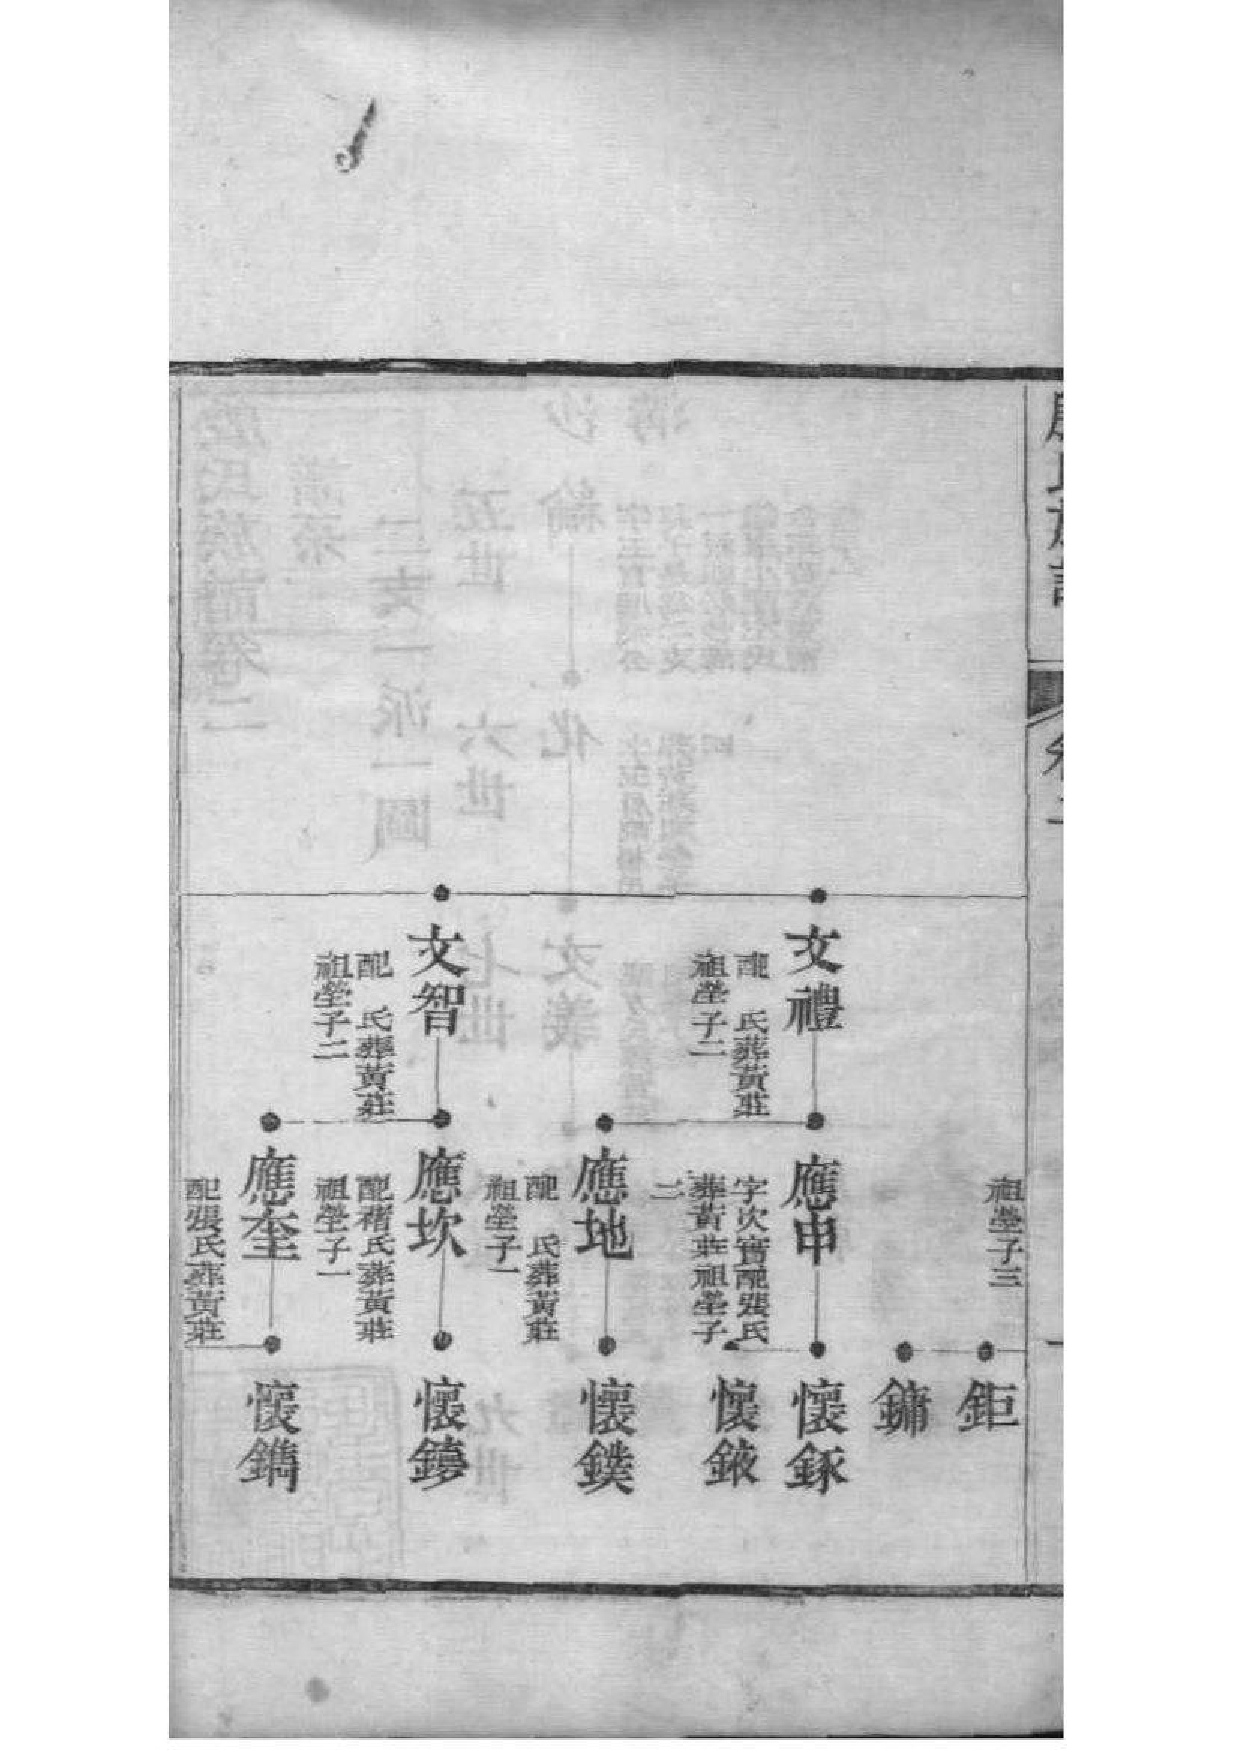 氏族譜
卷二
祖塋子三
鉅
鏞
文禮
配 氏葬黃莊
祖塋子二
應申
字次寶配張氏
葬黃莊祖塋子
二
懷鉩
懷鉞
應地
配 氏葬黃莊
祖塋子一
懷鏷
文智
配 氏葬黃莊
祖塋子二
應坎
配褚氏葬黃莊
祖塋子一
懷
應奎
配張氏葬黃莊
懷鐫